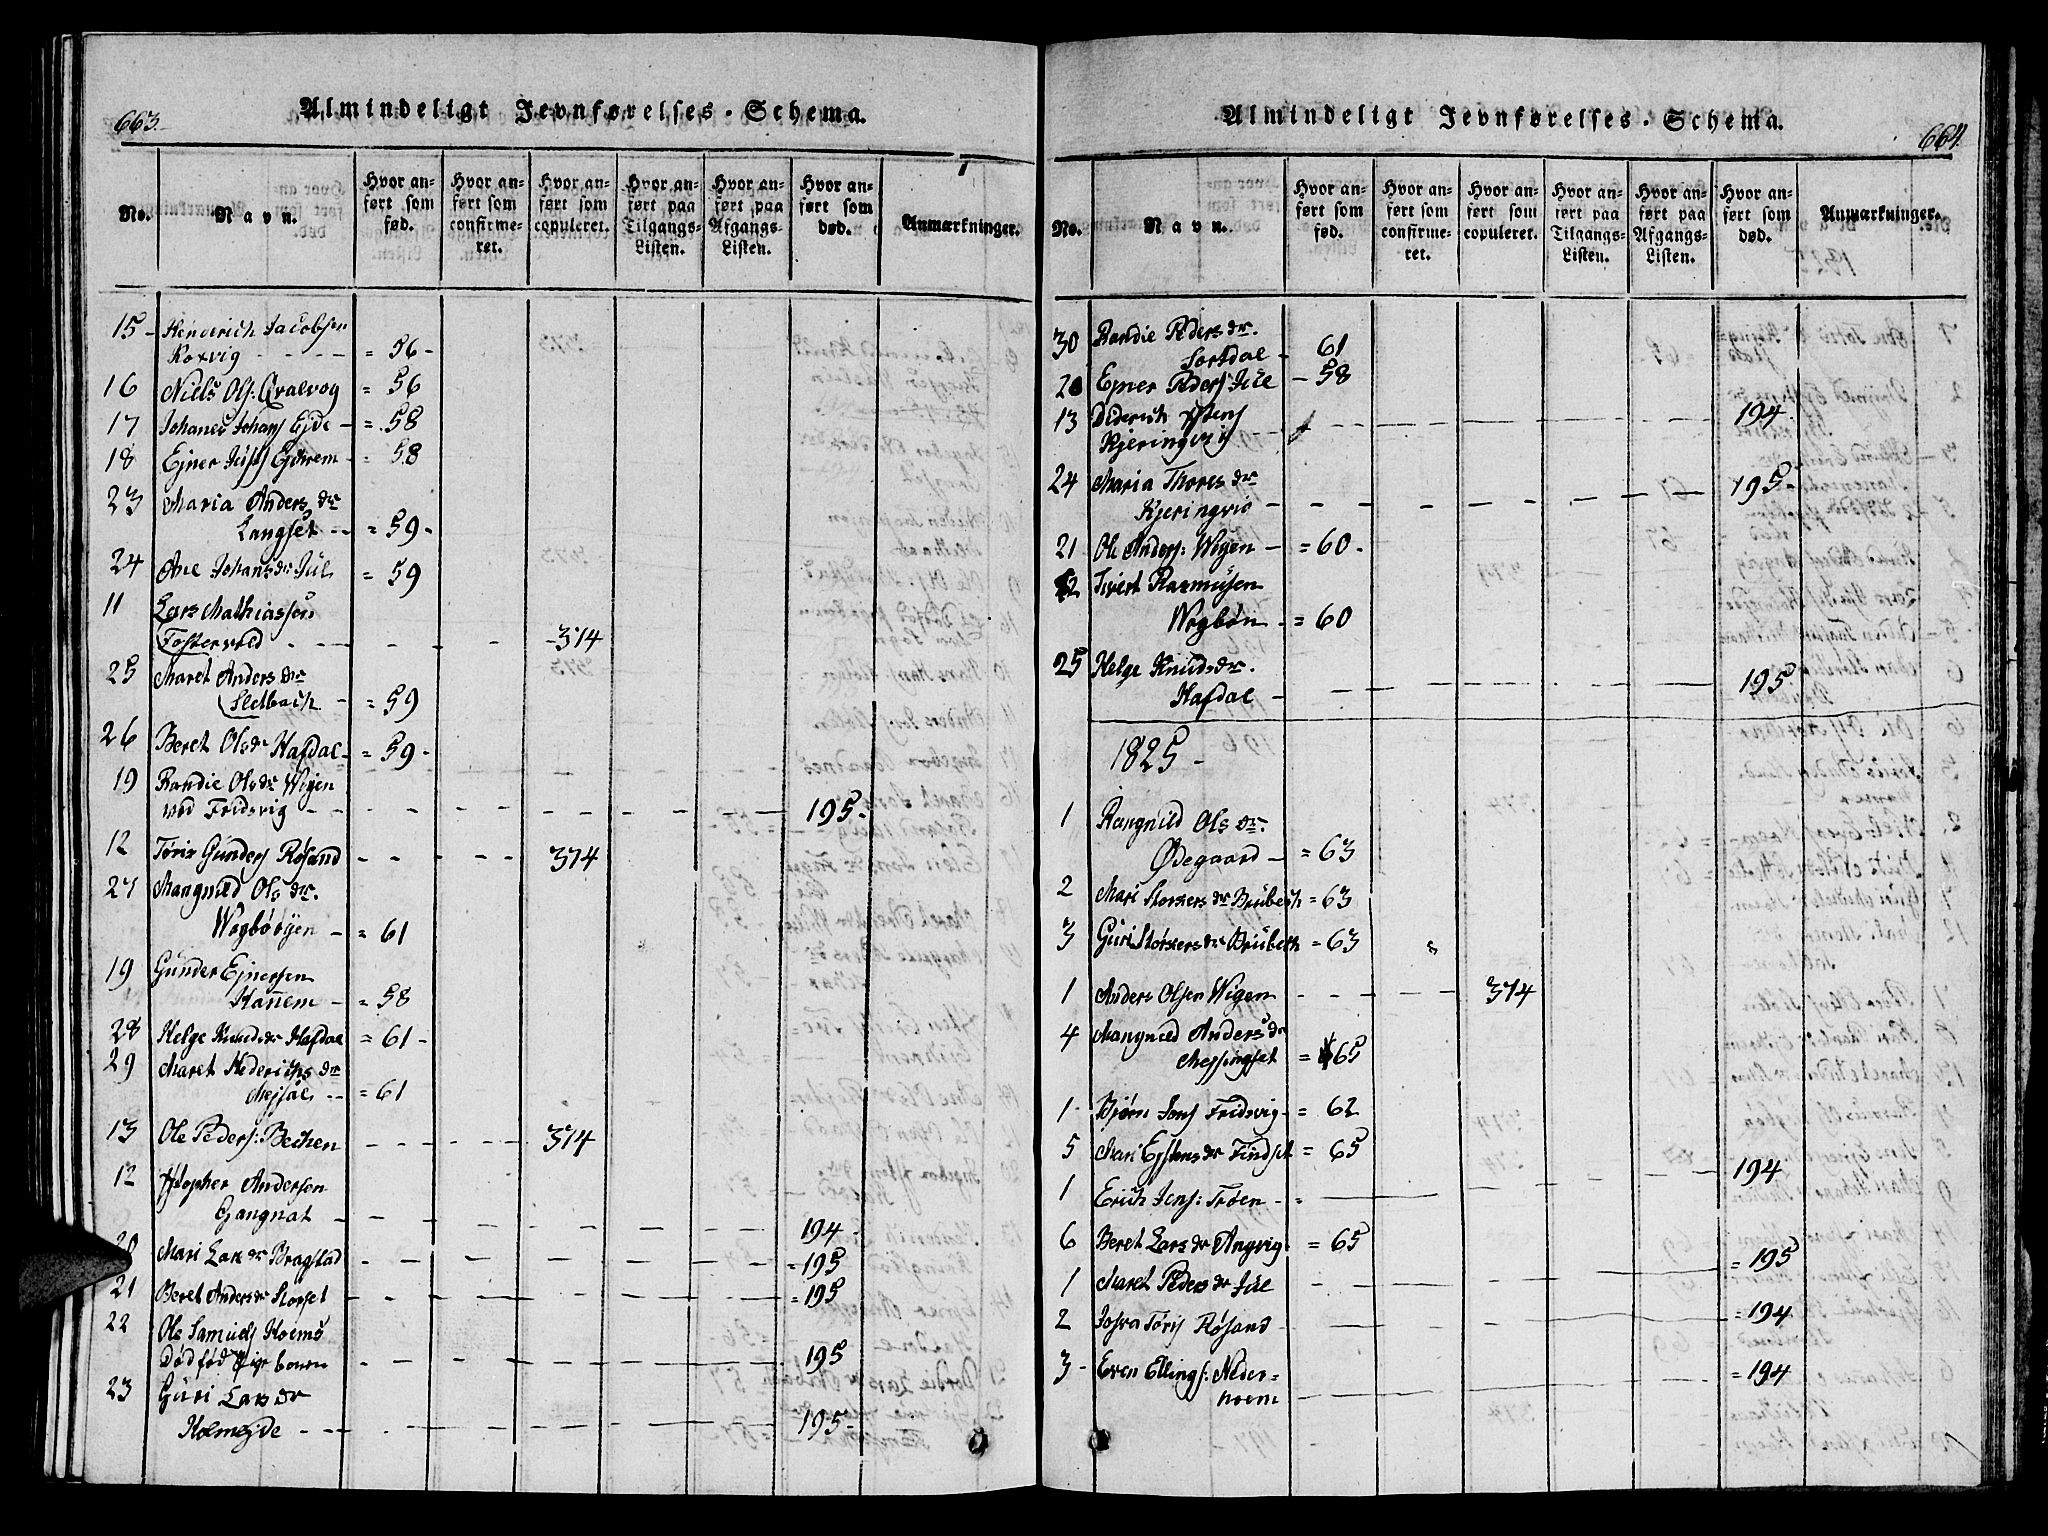 663.
Almindeligt Jevnførelses-Schema.
No.
Navn.
Hvor anført som fød.
Hvor anført som confirmeret.
Hvor anført som copuleret.
Hvor anført paa Tilgangs-Listen.
Hvor anført paa Afgangs-Listen.
Hvor anført som død.
Anmærkninger.
15 - Henderich Jacobsen
Roxvig - - - - = 56 -
16 Niels Ols: Qvalvog = 56
17 Johanes Johans Ejde - = 58
18 Ejner Juls Gjørem - = 58
23 Maria Anders dr
Langset - - = 59 -
24 Ane Johans dr Jul = 59
11 Lars Mathiassen
Fostervold - - - - - 374
25 Maret Anders dr
Sletbach - = 59
26 Beret Ols dr Hafdal - = 59 -
19 Randie Ols dr Wogen
ved Fridsvig - - - - - - - - 195 -
12 Tøris Gunders Røsand - - - - 374
27 Mangnild Ols dr.
Wogbøugen - = 61
19 Gunder Ejnersen
Hanem - = 58
28 Helge Knuds dr Hafdal = 61 -
29 Maret Hederichs dr
Messal - - = 61
13 Ole Peders: Bechen - - - - 374
12 Xstopher Andersen
Gangnat - - - - - - - - 194 -
20 Mari Lars dr Bragstad - - - - - - = 195
21 Beret Anders dr Storset - - - - - - = 195
22 Ole Samuels Hoems
Dødfød Pige barn - - - - - - 195
23 Guri Lars dr
Holmejde - - - - - - - - 195 -
664.
Almindeligt Jevnførelses-Schema.
No.
Navn.
Hvor anført som fød.
Hvor anført som confirmeret.
Hvor anført som copuleret.
Hvor anført paa Tilgangs-Listen.
Hvor anført paa Afgangs-Listen.
Hvor anført som død.
Anmærkninger.
30 Randie Peders dr.
Sortdal - 61
20 Ejner Peders Jul - 58
13 Diderich Xstens
Kjeringvig - - - - - - - 194
24 Maria Thores dr
Kjeringvig - - - - - - - 195 -
21 Ole Anders: Wogen - = 60 -
22 Sivert Rasmusen
Wogbøn - = 60
25 Helge Knuds dr.
Hafdal - - - - - - 195
1825 -
1 Rangnild Ols dr.
Ødegaard - = 63
2 Mari Storkers dr Brubech = 63
3 Guri Storkers dr Brubech = 63
1 Anders Olsen Wigen - - - - - 374
4 Mangnild Anders dr
Messingset = 65
1 - Bjørn Jens Fridsvig - = 62
5 Mari Ejstens dr Findset = 65
1 Erich Jens: Trøen - = - - - - - - 194
6 Beret Lars dr Angvig = 65
1 Maret Peders dr Jul - - - - - - = 195
2 Josva Tøris Røsand - - - - - - = 194
3 - Even Ellings: Nederhoem - - - - - - = 194